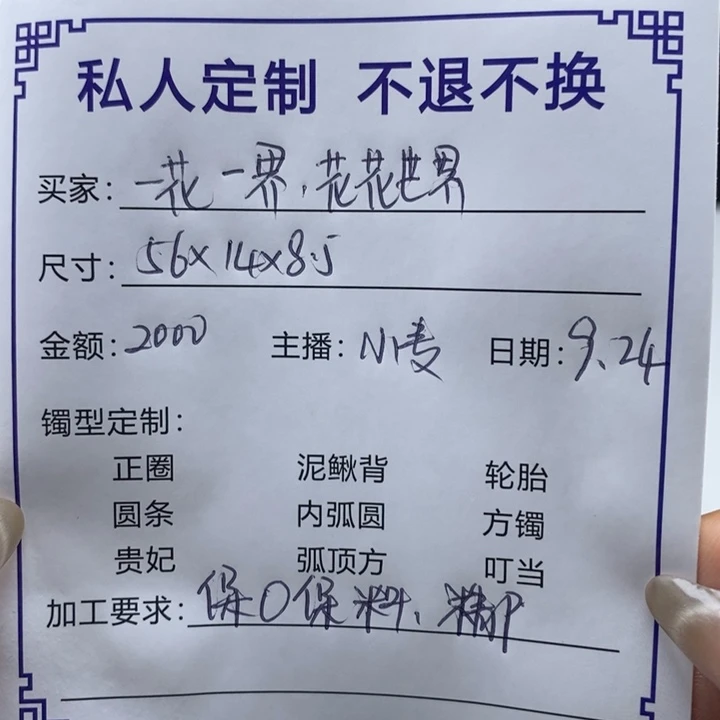 私人定制 不退不换
买家：一花一界，花花世界
尺寸：56×14×8.5
金额：2000 主播：小麦 日期：9.24
镯型定制：
正圈 泥鳅背 轮胎
圆条 内弧圆 方镯
贵妃 弧顶方 叮当
加工要求：保O保料、精